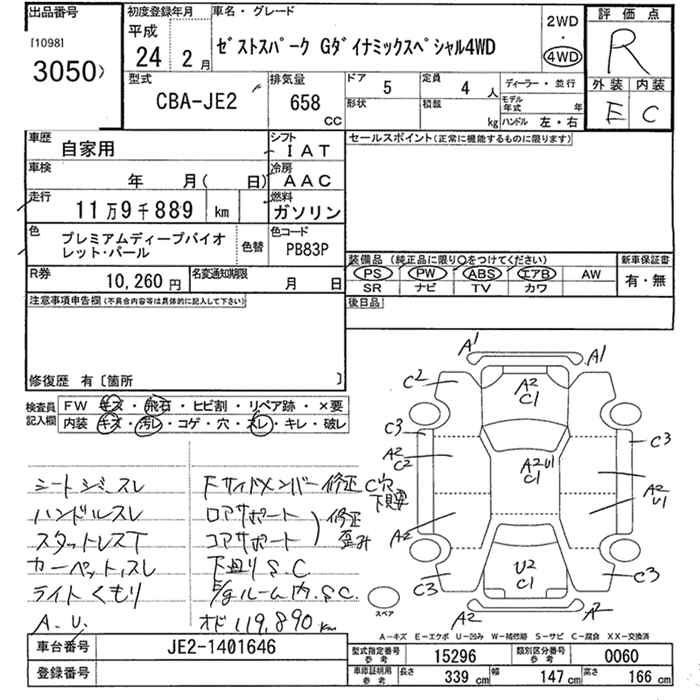 出品番号
[1098]
3050
初度登録年月
平成
24年 2月
車名・グレード
ｾﾞｽﾄｽﾊﾟｰｸ Gﾀﾞｲﾅﾐｯｸｽﾍﾟｼｬﾙ4WD
2WD
・
4WD
評価点
R
型式
CBA-JE2
排気量
658
CC
ドア
5
定員
4人
ディーラー・並行
形状
積載
kg
モデル年式
年
ハンドル 左・右
外装 内装
E C
車歴
自家用
シフト
IAT
車検
年 月( 日)
冷房
AAC
走行
11万9千889 km
燃料
ガソリン
色
プレミアムディープバイオレット・パール
色替
色コード
PB83P
R券
10,260円
名変通知期限
月 日
セールスポイント(正常に機能するものに限ります)
装備品 (純正品に限り○をつけてください)
PS PW ABS エアB AW
SR ナビ TV カワ
新車保証書
有・無
後日品
注意事項申告欄(不具合内容等は具体的に記入して下さい)
修復歴 有〔箇所 〕
検査員記入欄
FW キズ・飛石・ヒビ割・リペア跡・×要
内装 キズ・汚レ・コゲ・穴・スレ・キレ・破レ
シートシミ、スレ
ハンドルスレ
スタットレスT
カーペット、スレ
ライトくもり
A.U.
Fサイドメンバー修正 C穴
下見要
ロアサポート
コアサポート
修正
歪み
下廻りS.C
E/gルーム内S.C.
オド119,890km
A1
A1
C2
A2
C1
C3
C3
A2
C2
A2U1
C1
A2
U1
A2
U2
C1
C3
C3
A2
A2
スペア
A－キズ E－エクボ U－凹み W－補修跡 S－サビ C－腐食 XX－交換済
車台番号
JE2-1401646
登録番号
型式指定番号
参考
15296
類別区分番号
参考
0060
車庫証明用
参考
長さ
339 cm
幅
147 cm
高さ
166 cm